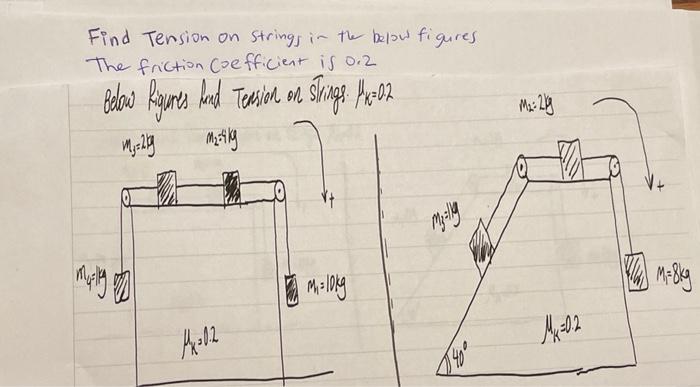 Find Tension on strings in the below figures
The friction coefficient is 0.2
Below figures find Tension on strings. μk=0.2
m3=2kg m2=4kg
m4=1kg
m1=10kg
μk=0.2
m2=2kg
+
m3=1kg
m1=8kg
μk=0.2
40°
+